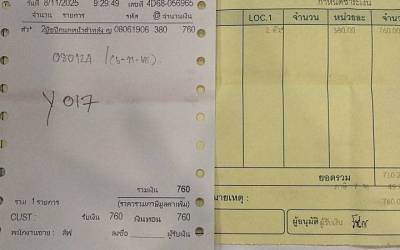 วันที่ 8/11/2025 9:29:49 4D68-056965
จำนวน รายการ รหัส @ จำนวนเงิน
08061906 380 760
Y 017
รวมเงิน 760
รวม 1 รายการ (ราคารวมภาษีมูลค่าเพิ่ม)
CUST : รับเงิน 760 เงินทอน 760
พนักงานขาย : ลงชื่อ ผู้รับเงิน
กำหนดชำระเงิน
LOC.1 จำนวน หน่วยละ จำนวน
2 380.00 760.00
ยอดรวม
หมายเหตุ :
ผู้อนุมัติ